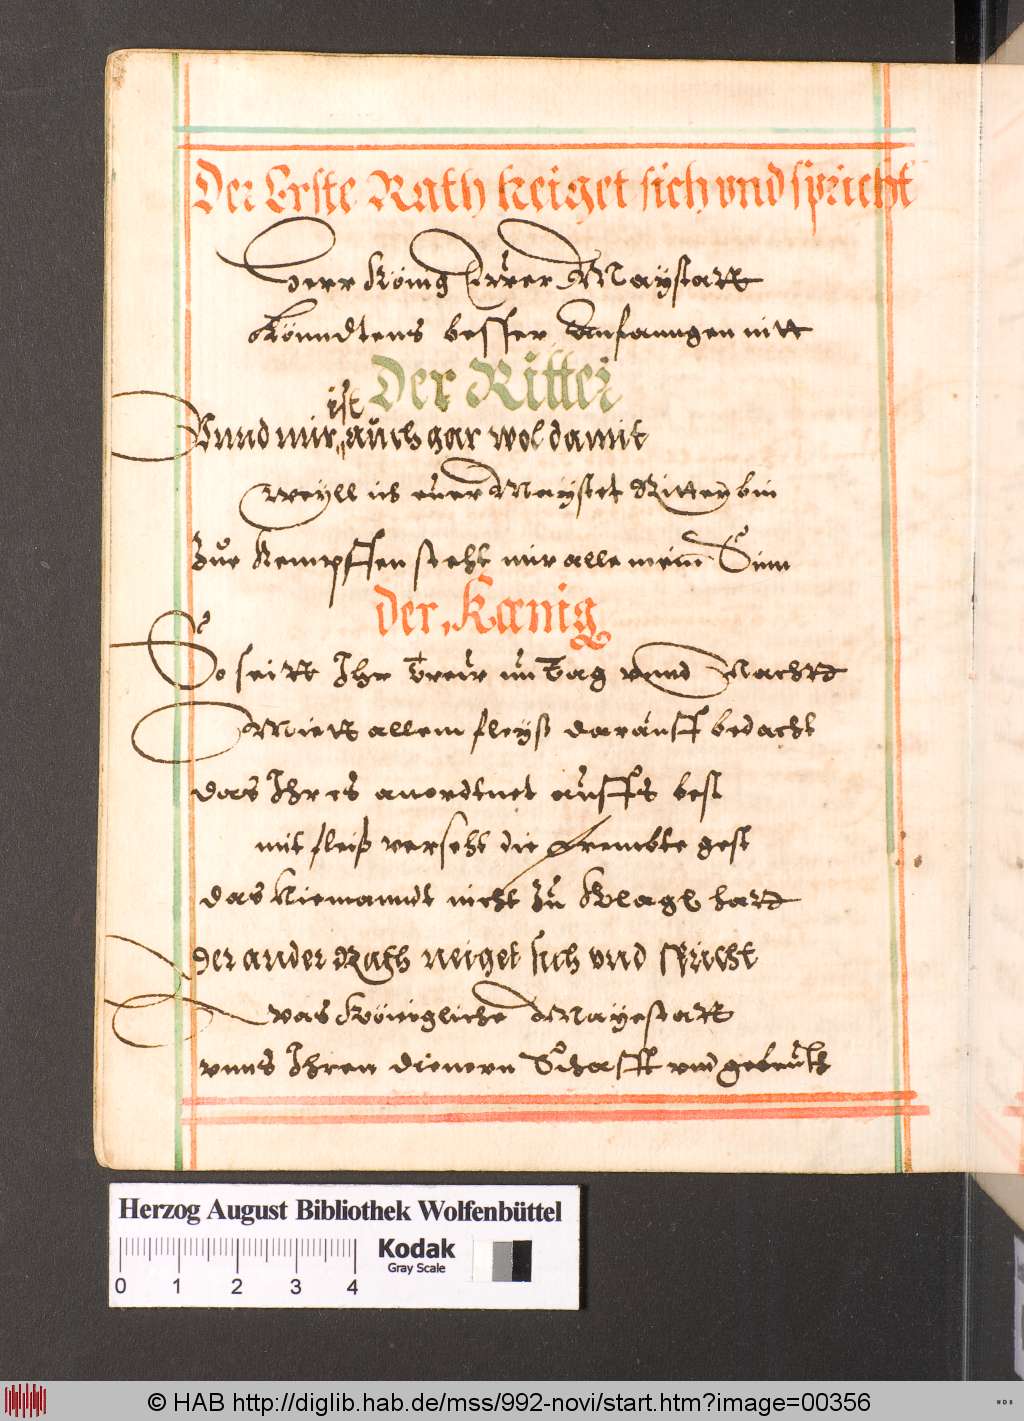 Der Erste Rath neiget sich vnd spricht
Herr König Eurer Maÿstatt
Könndtens besser Anfanngen nitt
Der Ritter
ist
Vnnd mir auch gar wol damit
Weÿll ich eüer Maÿstet Ritter bin
Zue Kempffen steht mir alle mein Sinn
der, Kœnig
So seitt Ihr Treür Tag vnnd Nachtt
Mitt allem fleÿß daraüff bedacht
das Ihr es anordtnet aüffs best
mit fleiß verseht die frembte gest
das Niemanndt nicht zu Klagen hatt
der ander Rath neiget sich vnd spricht
was Königliche Maÿestatt
vnns Ihren dienern Schafft vnd gebeüth
Herzog August Bibliothek Wolfenbüttel
Kodak
Gray Scale
0 1 2 3 4
© HAB http://diglib.hab.de/mss/992-novi/start.htm?image=00356